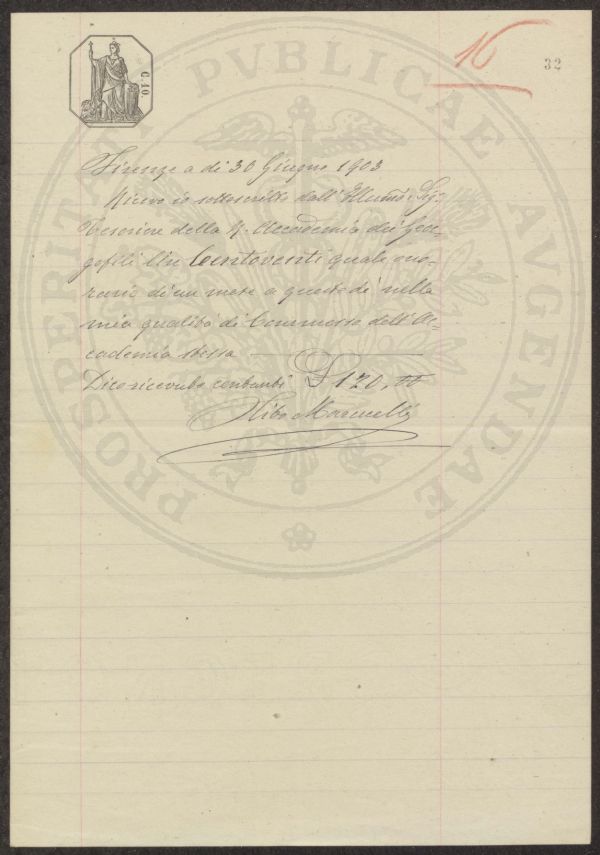 C. 10
16
32
PROSPERITATI PVBLICAE AVGENDAE
Firenze a dì 30 Giugno 1903
Ricevo io sottoscritto dall' Illmo Sig.
Tesoriere della R. Accademia dei Geor-
gofili lire Centoventi quale ono-
rario di un mese a questo dì nella
mia qualità di Commesso dell' Ac-
cademia stessa
Dico ricevute contanti £ 120,00